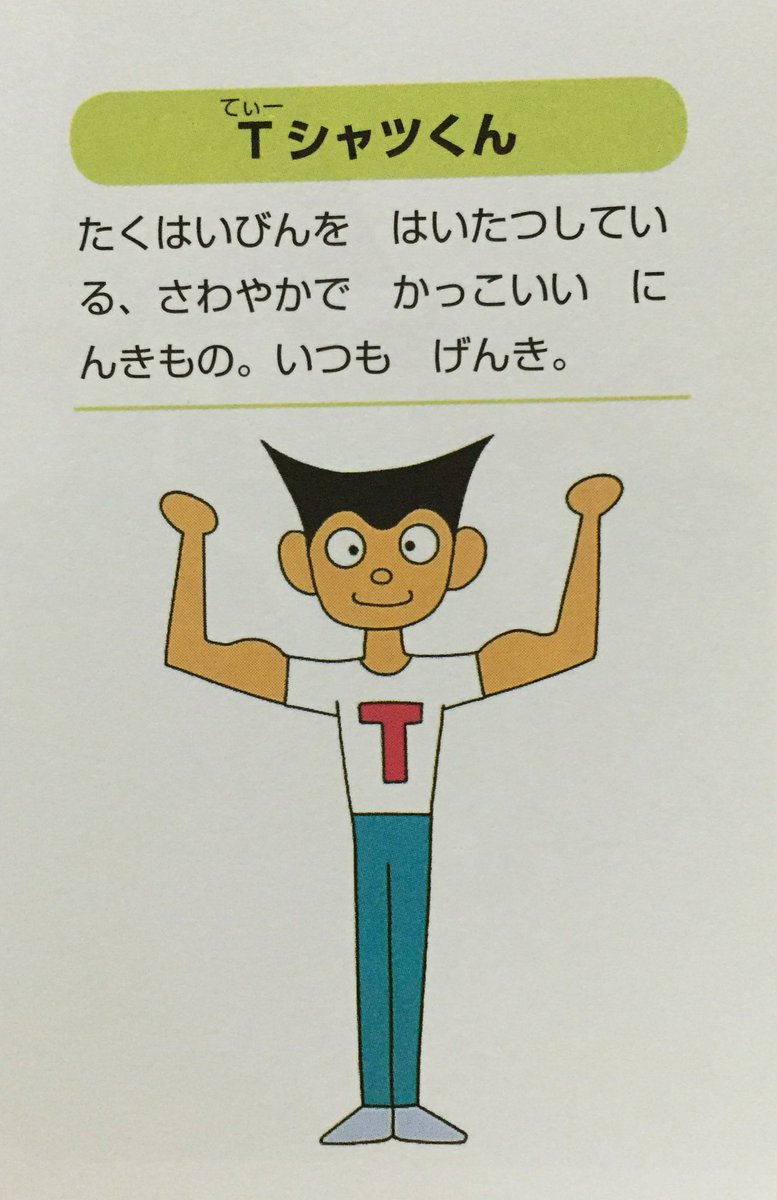 てぃー
Tシャツくん
たくはいびんを　はいたつしてい
る、さわやかで　かっこいい　に
んきもの。いつも　げんき。
T